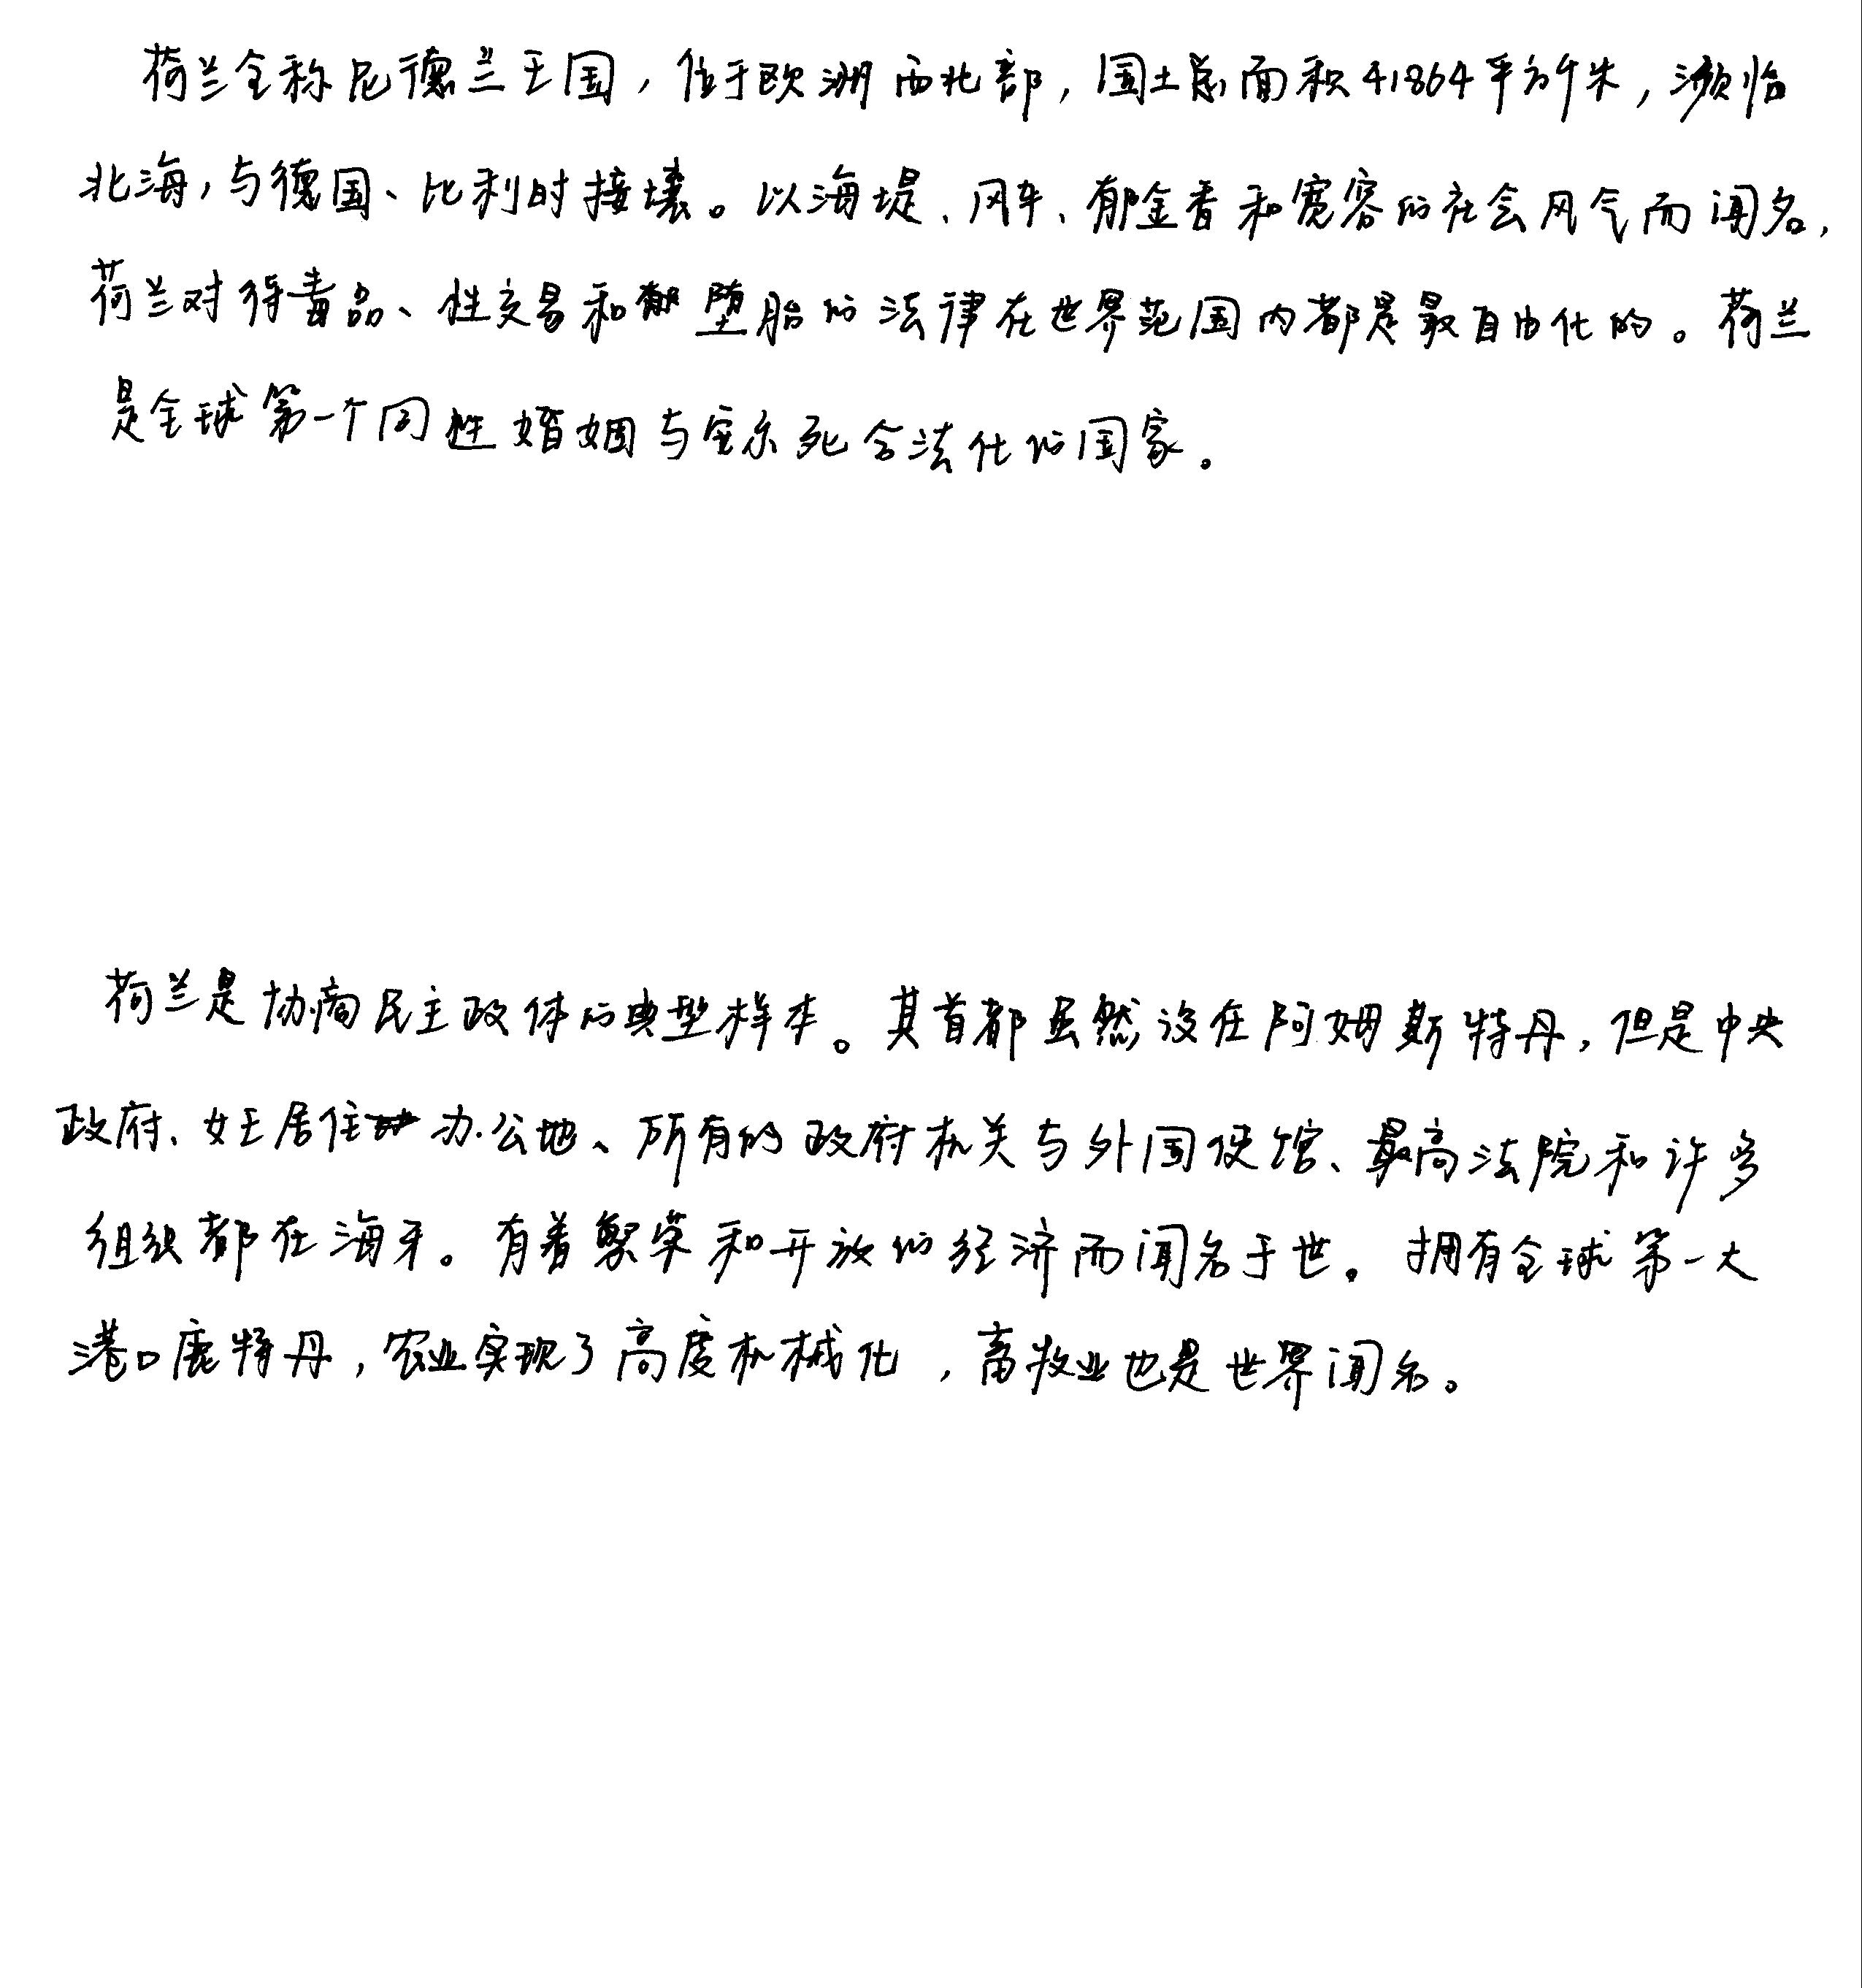 荷兰全称尼德兰王国，位于欧洲西北部，国土总面积41864平方千米，濒临
北海，与德国、比利时接壤。以海堤、风车、郁金香和宽容的社会风气而闻名，
荷兰对待毒品、性交易和堕胎的法律在世界范围内都是最自由化的。荷兰
是全球第一个同性婚姻与安乐死合法化的国家。
荷兰是协商民主政体的典型样本。其首都虽然设在阿姆斯特丹，但是中央
政府、女王居住办公地、所有的政府机关与外国使馆、最高法院和许多
组织都在海牙。有着繁荣和开放的经济而闻名于世。拥有全球第一大
港口鹿特丹，农业实现了高度机械化，畜牧业也是世界闻名。